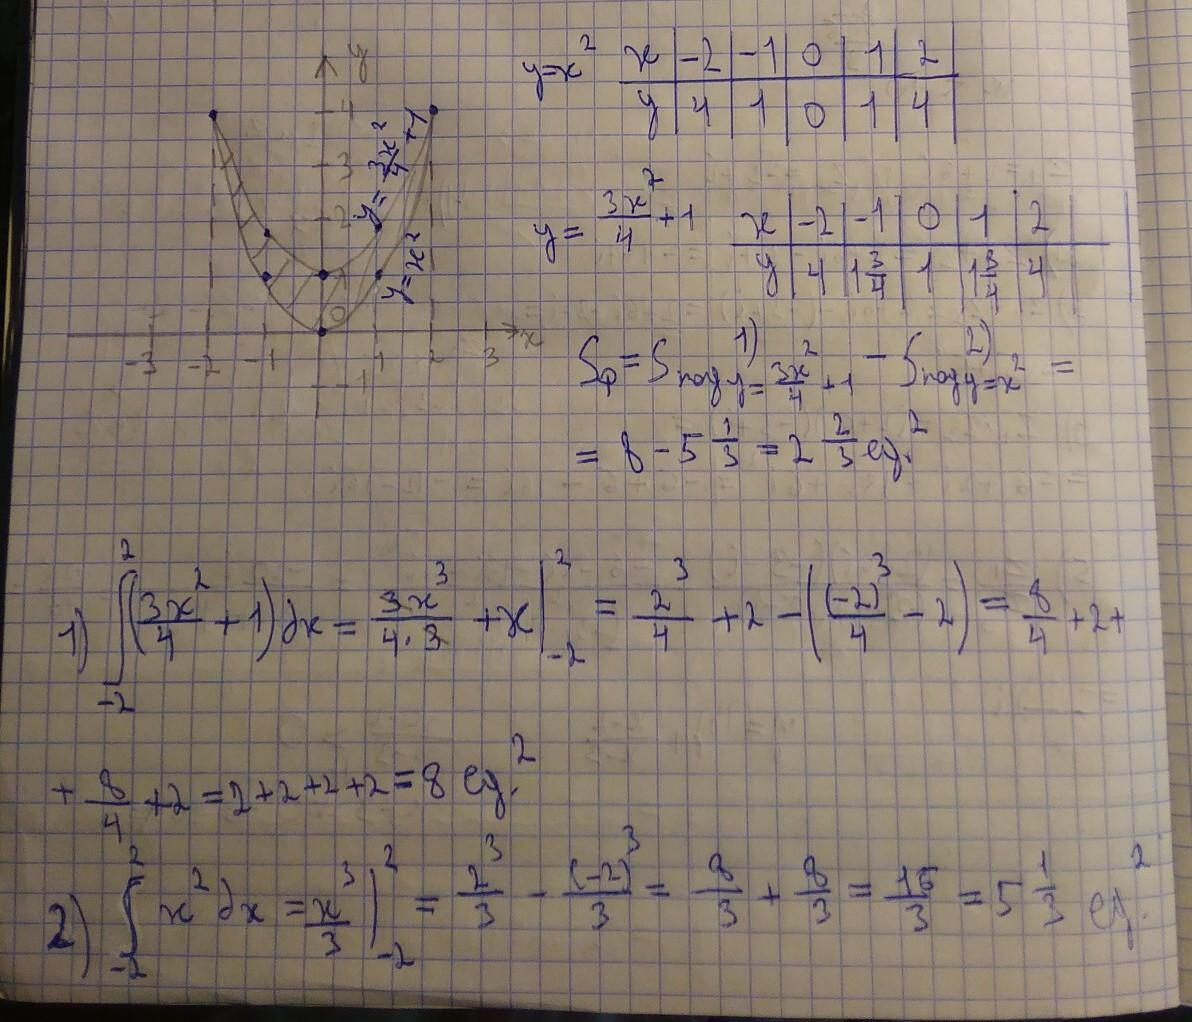 y=x² x -2 -1 0 1 2
y 4 1 0 1 4
y
4
3
2
1
0
-3 -2 -1 1 2 3 x
-1
y=3x²/4+1
y=x²
y=3x²/4+1 x -2 -1 0 1 2
y 4 1 3/4 1 1 3/4 4
Sф=Sпод y=3x²/4+1 1) - Sпод y=x² 2) =
= 8-5 1/3 = 2 2/3 ед.²
1) ∫₋₂² (3x²/4+1)dx = 3x³/4·3 +x |₋₂² = 2³/4 +2-((-2)³/4 -2) = 8/4 +2+
+ 8/4 +2 = 2+2+2+2=8 ед.²
2) ∫₋₂² x²dx = x³/3 |₋₂² = 2³/3 - (-2)³/3 = 8/3 + 8/3 = 16/3 = 5 1/3 ед.²